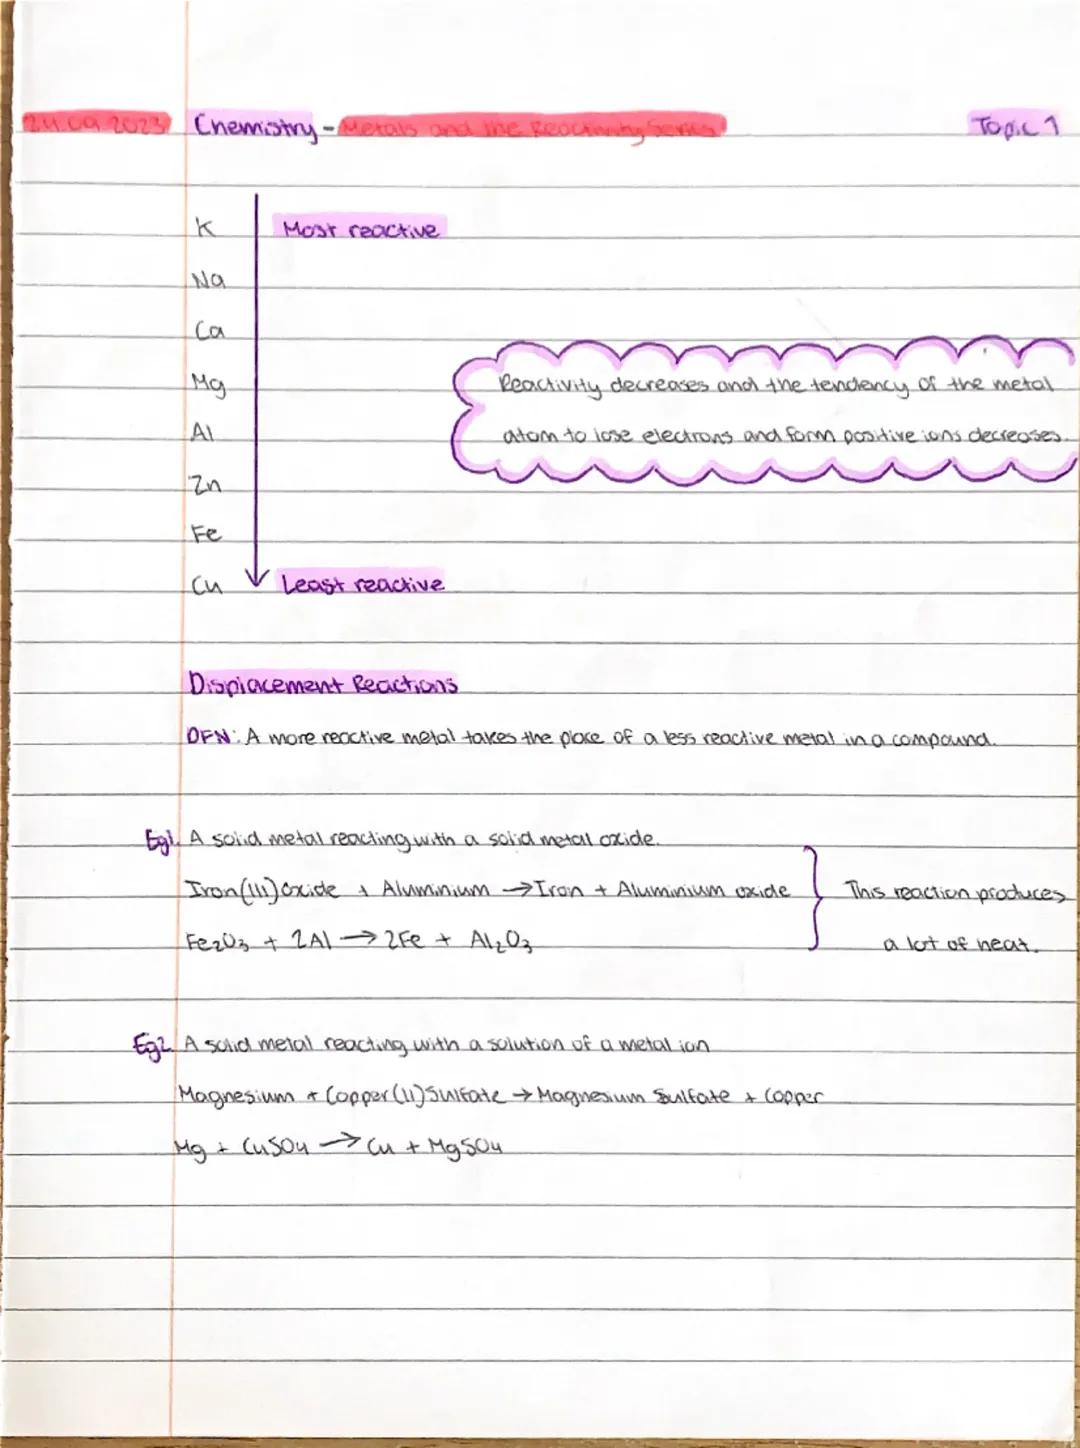 24.09.2023 Chemistry - Metals and the Reactivity Series Topic 1
K Most reactive
Na
Ca
Mg
Reactivity decreases and the tendency of the metal
Al
atom to lose electrons and form positive ions decreases.
Zn
Fe
Cu Least reactive
Displacement Reactions
DFN: A more reactive metal takes the place of a less reactive metal in a compound.
Eg1. A solid metal reacting with a solid metal oxide.
Iron(III) oxide + Aluminium → Iron + Aluminium oxide
This reaction produces
Fe₂O₃ + 2Al → 2Fe + Al₂O₃
a lot of heat.
Eg2. A solid metal reacting with a solution of a metal ion
Magnesium + Copper(II) Sulfate → Magnesium Sulfate + Copper
Mg + CuSO₄ → Cu + MgSO₄